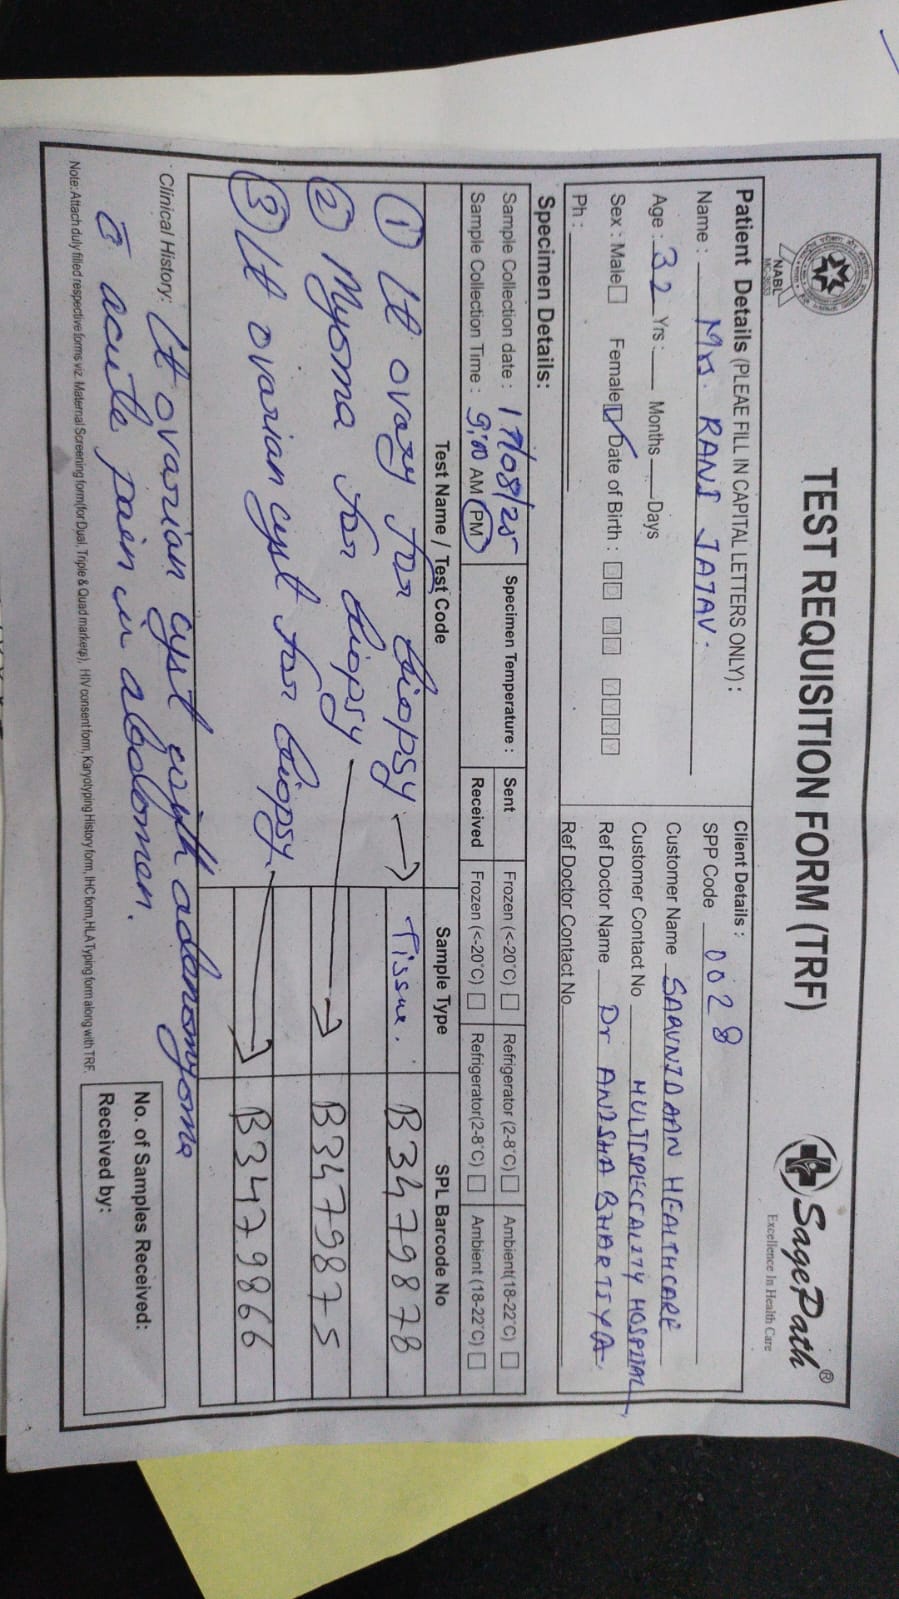 TEST REQUISITION FORM (TRF)
SagePath®
Excellence In Health Care
NABL
Patient Details (PLEAE FILL IN CAPITAL LETTERS ONLY) :
Name : Mrs. RANI JATAV.
Age : 32 Yrs : Months Days
Sex : Male Female Date of Birth :
Ph :
Client Details :
SPP Code 0028
Customer Name SARVNIDAAN HEALTHCARE
Customer Contact No MULTISPECCALITY HOSPITAL
Ref Doctor Name Dr ANISHA BHARTIYA
Ref Doctor Contact No.
Specimen Details:
Sample Collection date : 17/08/25 Specimen Temperature : Sent Frozen (<-20°C) Refrigerator (2-8°C) Ambient(18-22°C)
Sample Collection Time : 9:00 AM PM Received Frozen (<-20°C) Refrigerator(2-8°C) Ambient (18-22°C)
Test Name / Test Code Sample Type SPL Barcode No
① Lt ovary for biopsy → Tissue. B3479878
② Myoma for biopsy → B3479875
③ Lt ovarian cyst for biopsy. → B3479866
Clinical History: Lt ovarian cyst with adenomyoma
c̄ acute pain in abdomen.
No. of Samples Received:
Received by:
Note: Attach duly filled respective forms viz. Maternal Screening form(for Dual, Triple & Quad markers), HIV consent form, Karyotyping History form, IHC form, HLA Typing form along with TRF.